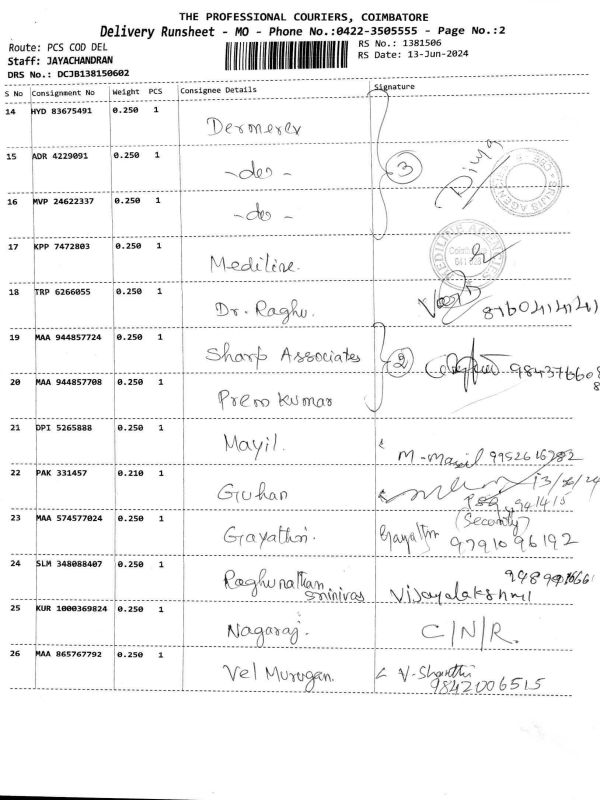 THE PROFESSIONAL COURIERS, COIMBATORE
Delivery Runsheet - MO - Phone No.:0422-3505555 - Page No.:2
Route: PCS COD DEL
RS No.: 1381506
Staff: JAYACHANDRAN
RS Date: 13-Jun-2024
DRS No.: DCJB138150602
S No Consignment No Weight PCS Consignee Details Signature
14 HYD 83675491 0.250 1 Dermerex
15 ADR 4229091 0.250 1 -do- 3 Divya
16 MVP 24622337 0.250 1 -do-
17 KPP 7472803 0.250 1 Mediline.
18 TRP 6266055 0.250 1 Dr. Raghu.
19 MAA 944857724 0.250 1 Sharp Associates 2
20 MAA 944857708 0.250 1 Prem Kumar
21 DPI 5265888 0.250 1 Mayil. 9952616282
22 PAK 331457 0.210 1 Guhan 13/6/24
23 MAA 574577024 0.250 1 Gayathri. Gayathri (Security) 9791096192
24 SLM 348088407 0.250 1 Raghunathan Srinivas Vijayalakshmi
25 KUR 1000369824 0.250 1 Nagaraj. C/N/R.
26 MAA 865767792 0.250 1 Vel Murugan. V-Shanthi 9842006515